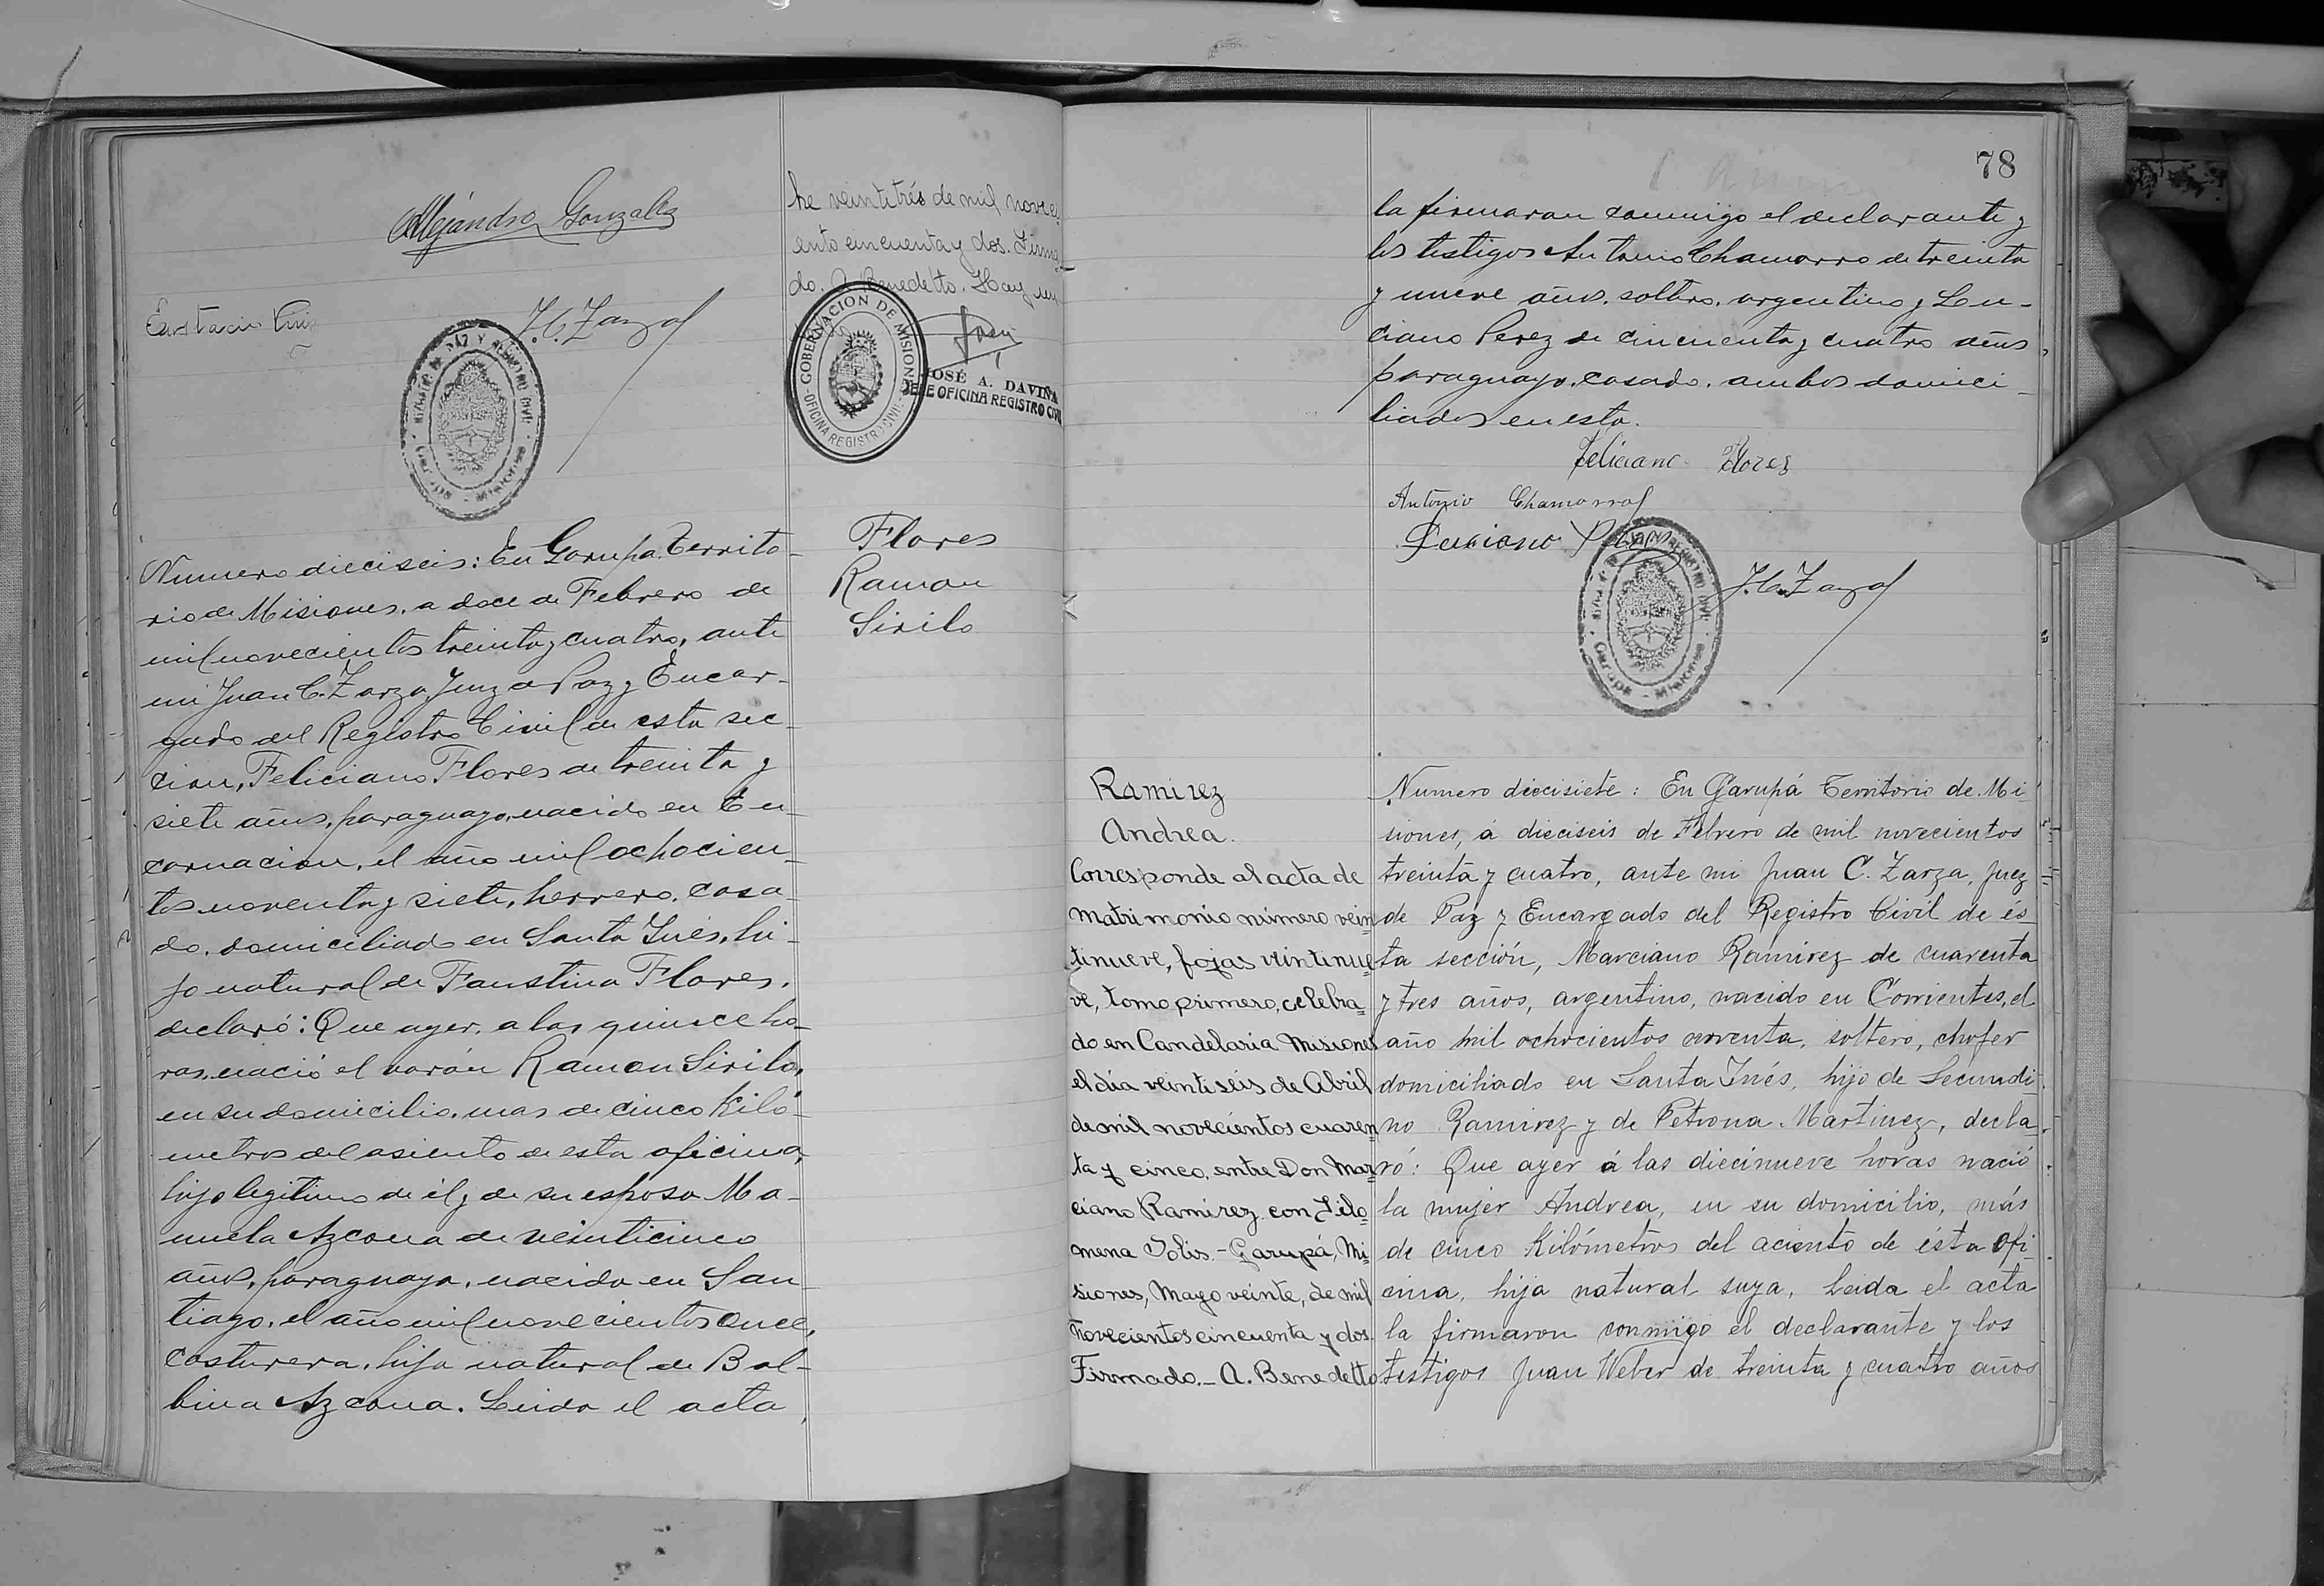 Alejandro Gonzalez
Eustacio
J.C. Zarza
Numero dieciseis: En Garupa. Territo-
rio de Misiones. a doce de Febrero de
mil novecientos treinta y cuatro, ante
mi Juan C. Zarza Juez de Paz y Encar-
gado del Registro Civil de esta sec-
cion, Feliciano Flores de treinta y
siete años, paraguayo, nacido en En-
carnacion, el año mil ochocien-
tos noventa y siete, herrero, casa-
do, domiciliado en Santa Inés, hi-
jo natural de Faustina Flores,
declaró: Que ayer, a las quince ho-
ras, nació el varón Ramon Sirilo,
en su domicilio, mas de cinco Kiló-
metros del asiento de esta oficina,
hijo legitimo de él y de su esposa Ma-
nuela Azcona de veinticinco
años, paraguaya, nacida en San-
tiago, el año mil novecientos once,
costurera, hija natural de Bal-
bina Azcona. Leida el acta
tre veintitrés de mil noveci
ento cincuenta y dos. Firma-
do. A. Benedetto. Hay un
GOBERNACION DE MISIONES
OFICINA REGISTRO CIVIL
JOSÉ A. DAVIÑA
JEFE OFICINA REGISTRO CIVIL
Flores
Ramon
Sirilo
78
la firmaron conmigo el declarante y
los testigos Antonio Chamorro de treinta
y nueve años, soltero, argentino y Lu-
ciano Perez de cincuenta y cuatro años
paraguayo, casado, ambos domici-
liados en esta.
Feliciano Flores
Antonio Chamorro
Luciano Perez
J.C. Zarza
Ramirez
Andrea.
Corresponde al acta de
matrimonio número vein
tinueve, fojas veintinue
ve, tomo primero, celebra-
do en Candelaria Misiones
el día veintiséis de Abril
de mil novecientos cuaren
ta y cinco, entre Don Mar
ciano Ramirez con Filo-
mena Solis.- Garupá, Mi-
siones, Mayo veinte, de mil
novecientos cincuenta y dos.
Firmado.- A. Benedetto
Numero diecisiete: En Garupá Territorio de Mi-
siones, á dieciseis de Febrero de mil novecientos
treinta y cuatro, ante mi Juan C. Zarza, Juez
de Paz y Encargado del Registro Civil de és
ta sección, Marciano Ramirez de cuarenta
y tres años, argentino, nacido en Corrientes, el
año mil ochocientos noventa, soltero, chofer
domiciliado en Santa Inés, hijo de Secundi-
no Ramirez y de Petrona Martinez, decla-
ró: Que ayer á las diecinueve horas nació
la mujer Andrea, en su domicilio, más
de cinco Kilómetros del aciento de ésta ofi-
cina, hija natural suya, Leida el acta
la firmaron conmigo el declarante y los
testigos Juan Weber de treinta y cuatro años